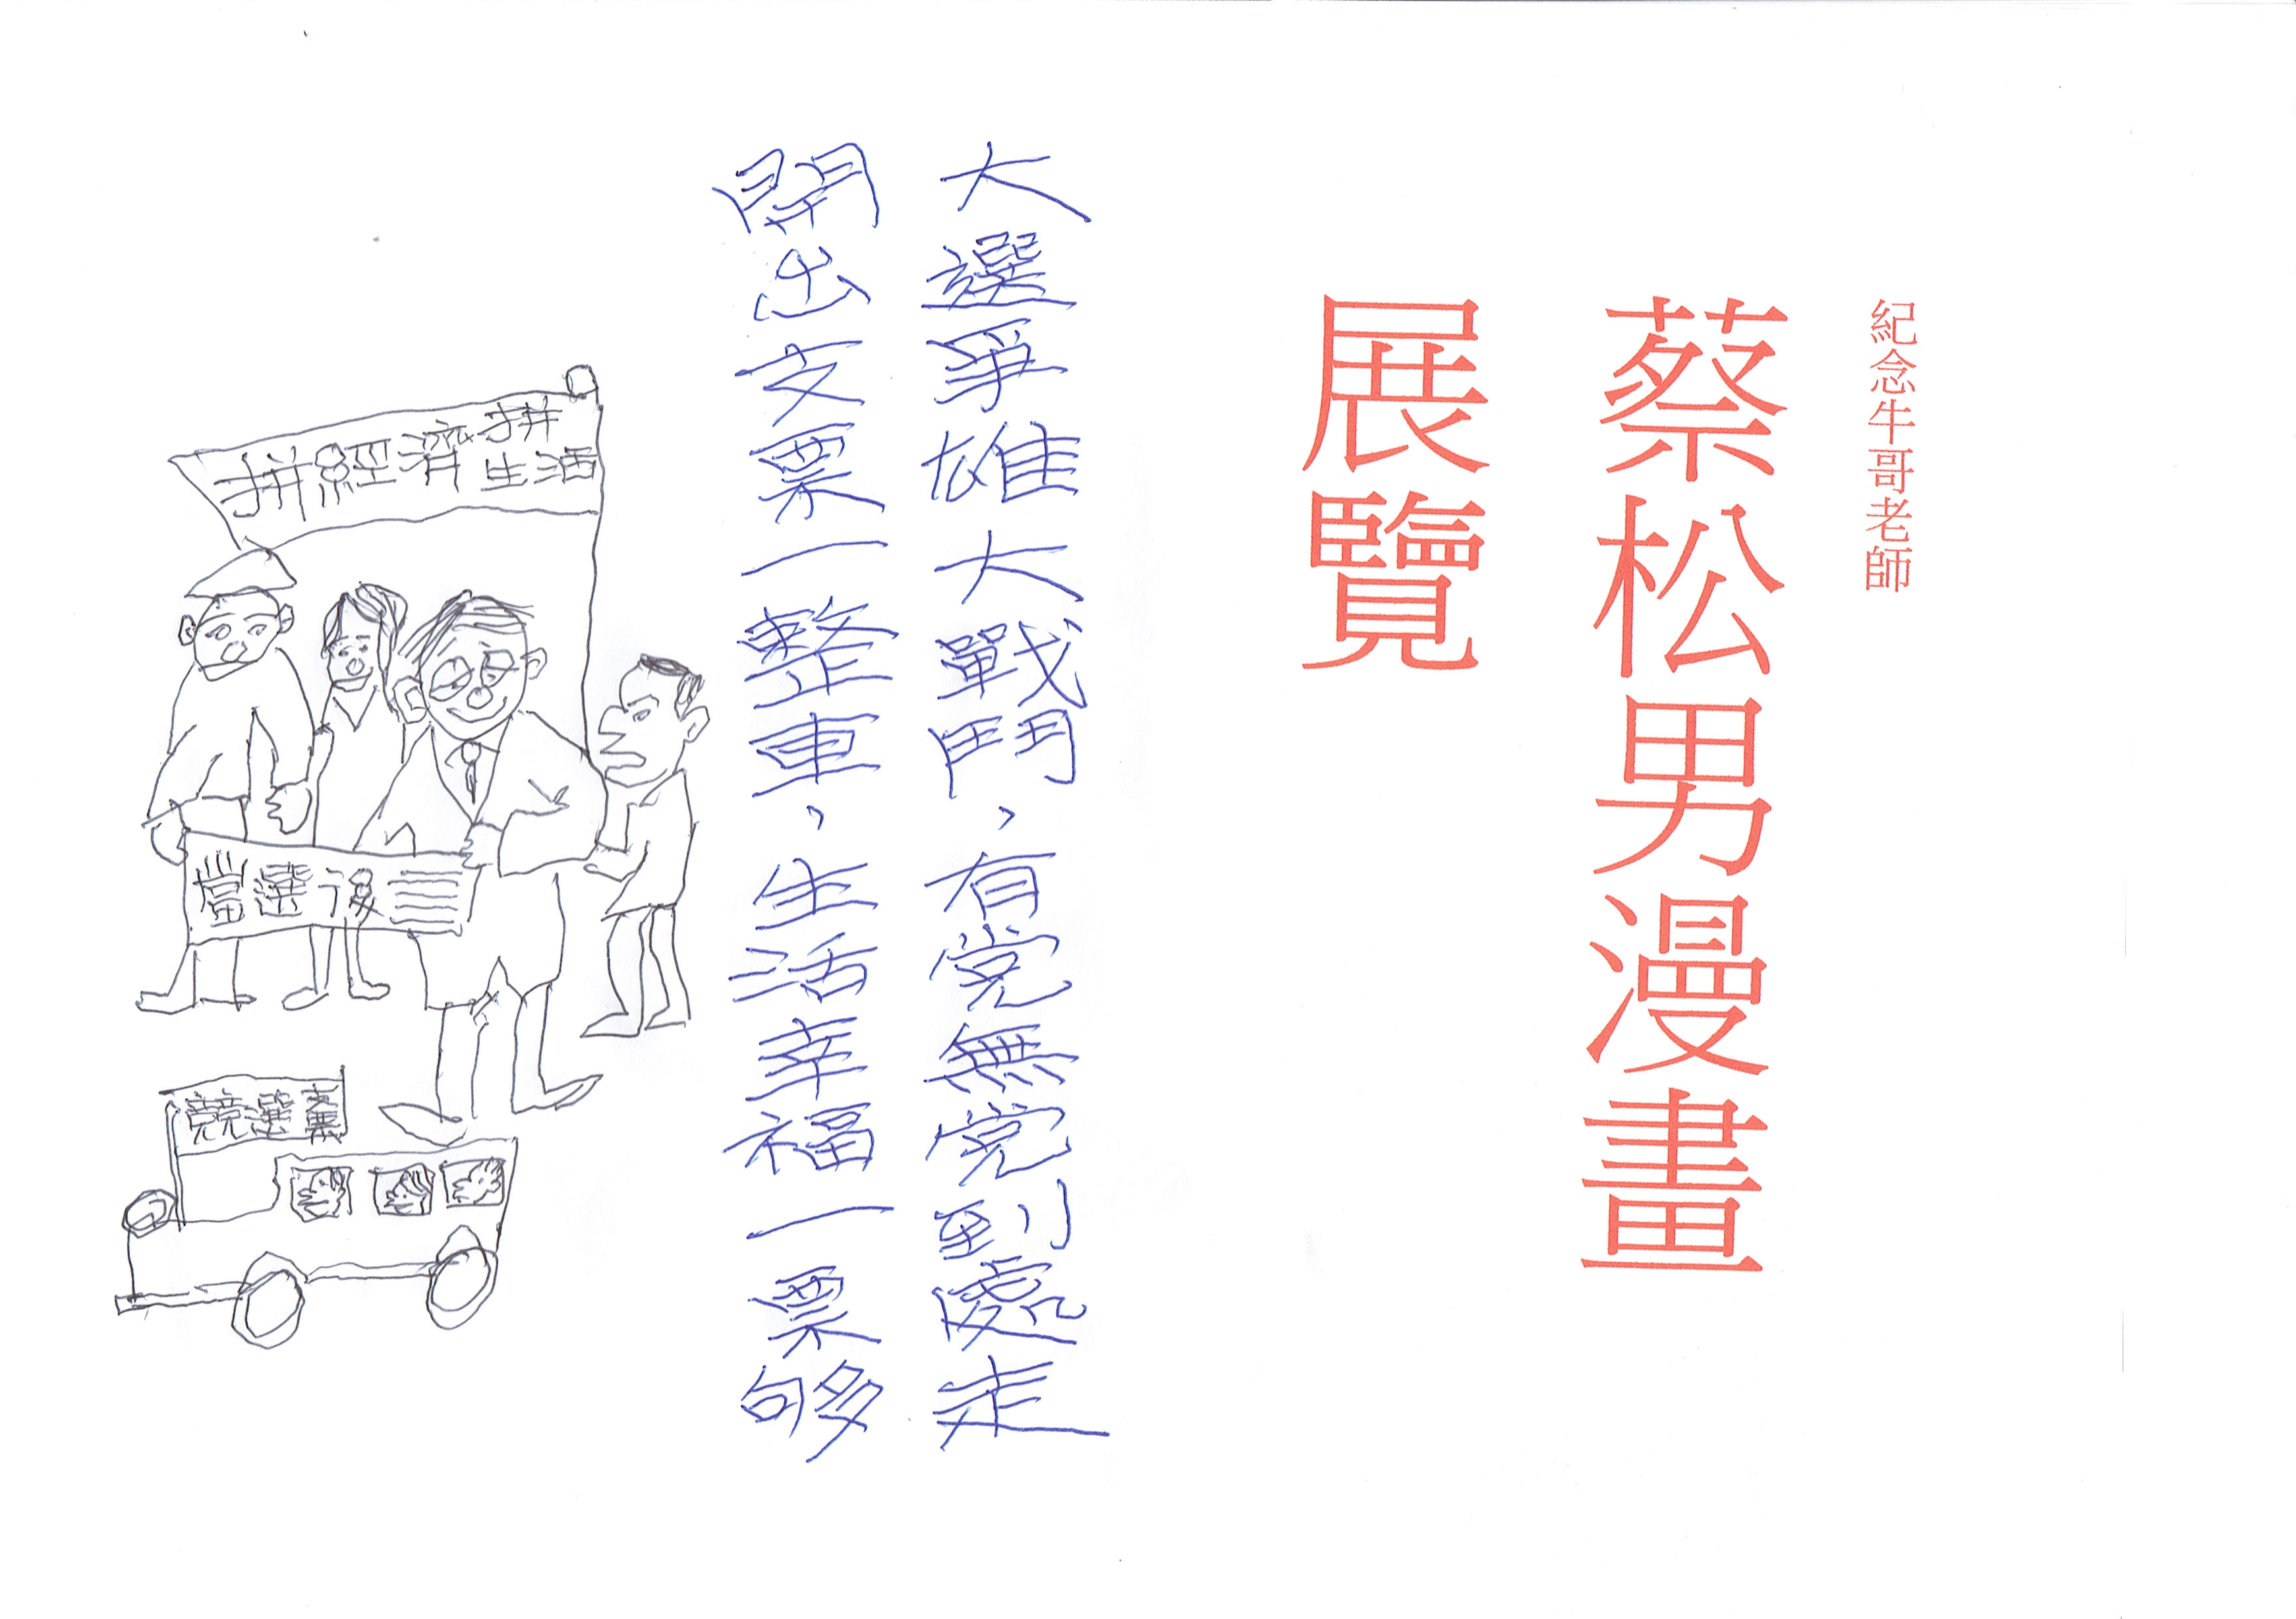 紀念牛哥老師
蔡松男漫畫
展覽
大選爭雄大戰鬥，有党無党到處走
開出支票一整車，生活幸福一票够
拼經濟拼生活
當選後
競選